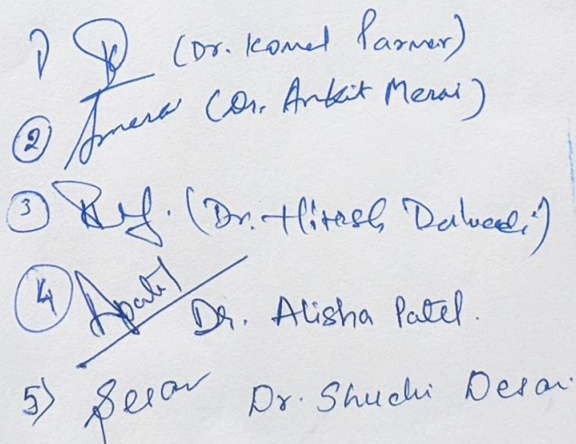 1) (Dr. Komal Parmar)
② (Dr. Ankit Merai)
③ (Dr. Hiresh Dalwadi)
④ Apatel Dr. Alisha Patel.
5) Dr. Shuchi Desai